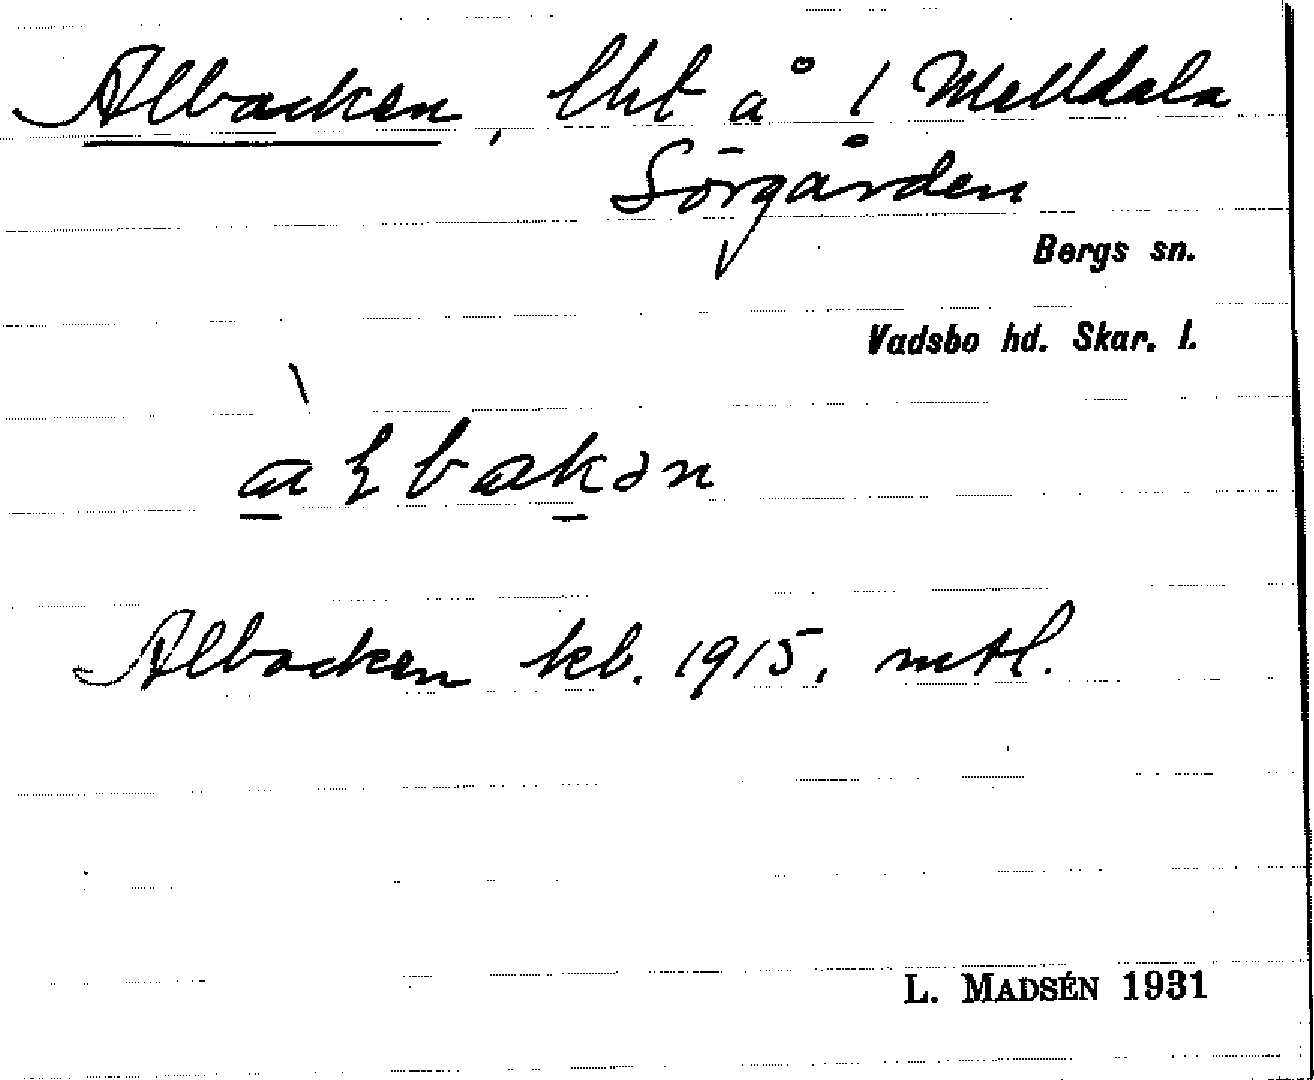 Albacken, lht å / Melldala
Sörgården
Bergs sn.
Vadsbo hd. Skar. l.
Albacken kb. 1915, mtl.
L. MADSÉN 1931